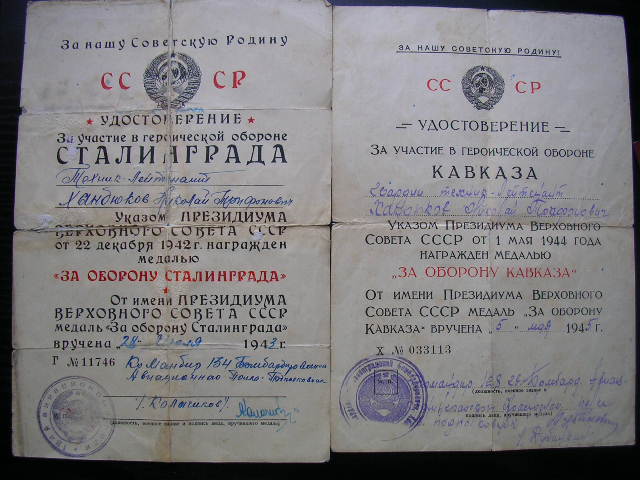 За нашу Советскую Родину
СС СР
УДОСТОВЕРЕНИЕ
За участие в героической обороне
СТАЛИНГРАДА
Техник-лейтенант
Николай Трифонович
Указом ПРЕЗИДИУМА
ВЕРХОВНОГО СОВЕТА СССР
от 22 декабря 1942 г. награжден
медалью
«ЗА ОБОРОНУ СТАЛИНГРАДА»
От имени ПРЕЗИДИУМА
ВЕРХОВНОГО СОВЕТА СССР
медаль «За оборону Сталинграда»
вручена 28 1943 г.
Г № 11746 Командир 134
Авиационного Полка-
(должность, военное звание и подпись лица, вручившего медаль)
ЗА НАШУ СОВЕТСКУЮ РОДИНУ!
СС СР
— УДОСТОВЕРЕНИЕ —
ЗА УЧАСТИЕ В ГЕРОИЧЕСКОЙ ОБОРОНЕ
КАВКАЗА
Гвардии техник-лейтенант
Николай Трифонович
УКАЗОМ ПРЕЗИДИУМА ВЕРХОВНОГО
СОВЕТА СССР ОТ 1 МАЯ 1944 ГОДА
НАГРАЖДЕН МЕДАЛЬЮ
„ЗА ОБОРОНУ КАВКАЗА“
ОТ ИМЕНИ ПРЕЗИДИУМА ВЕРХОВНОГО
СОВЕТА СССР МЕДАЛЬ „ЗА ОБОРОНУ
КАВКАЗА“ ВРУЧЕНА „5„ мая 1945 г.
Х № 033113
подполковник